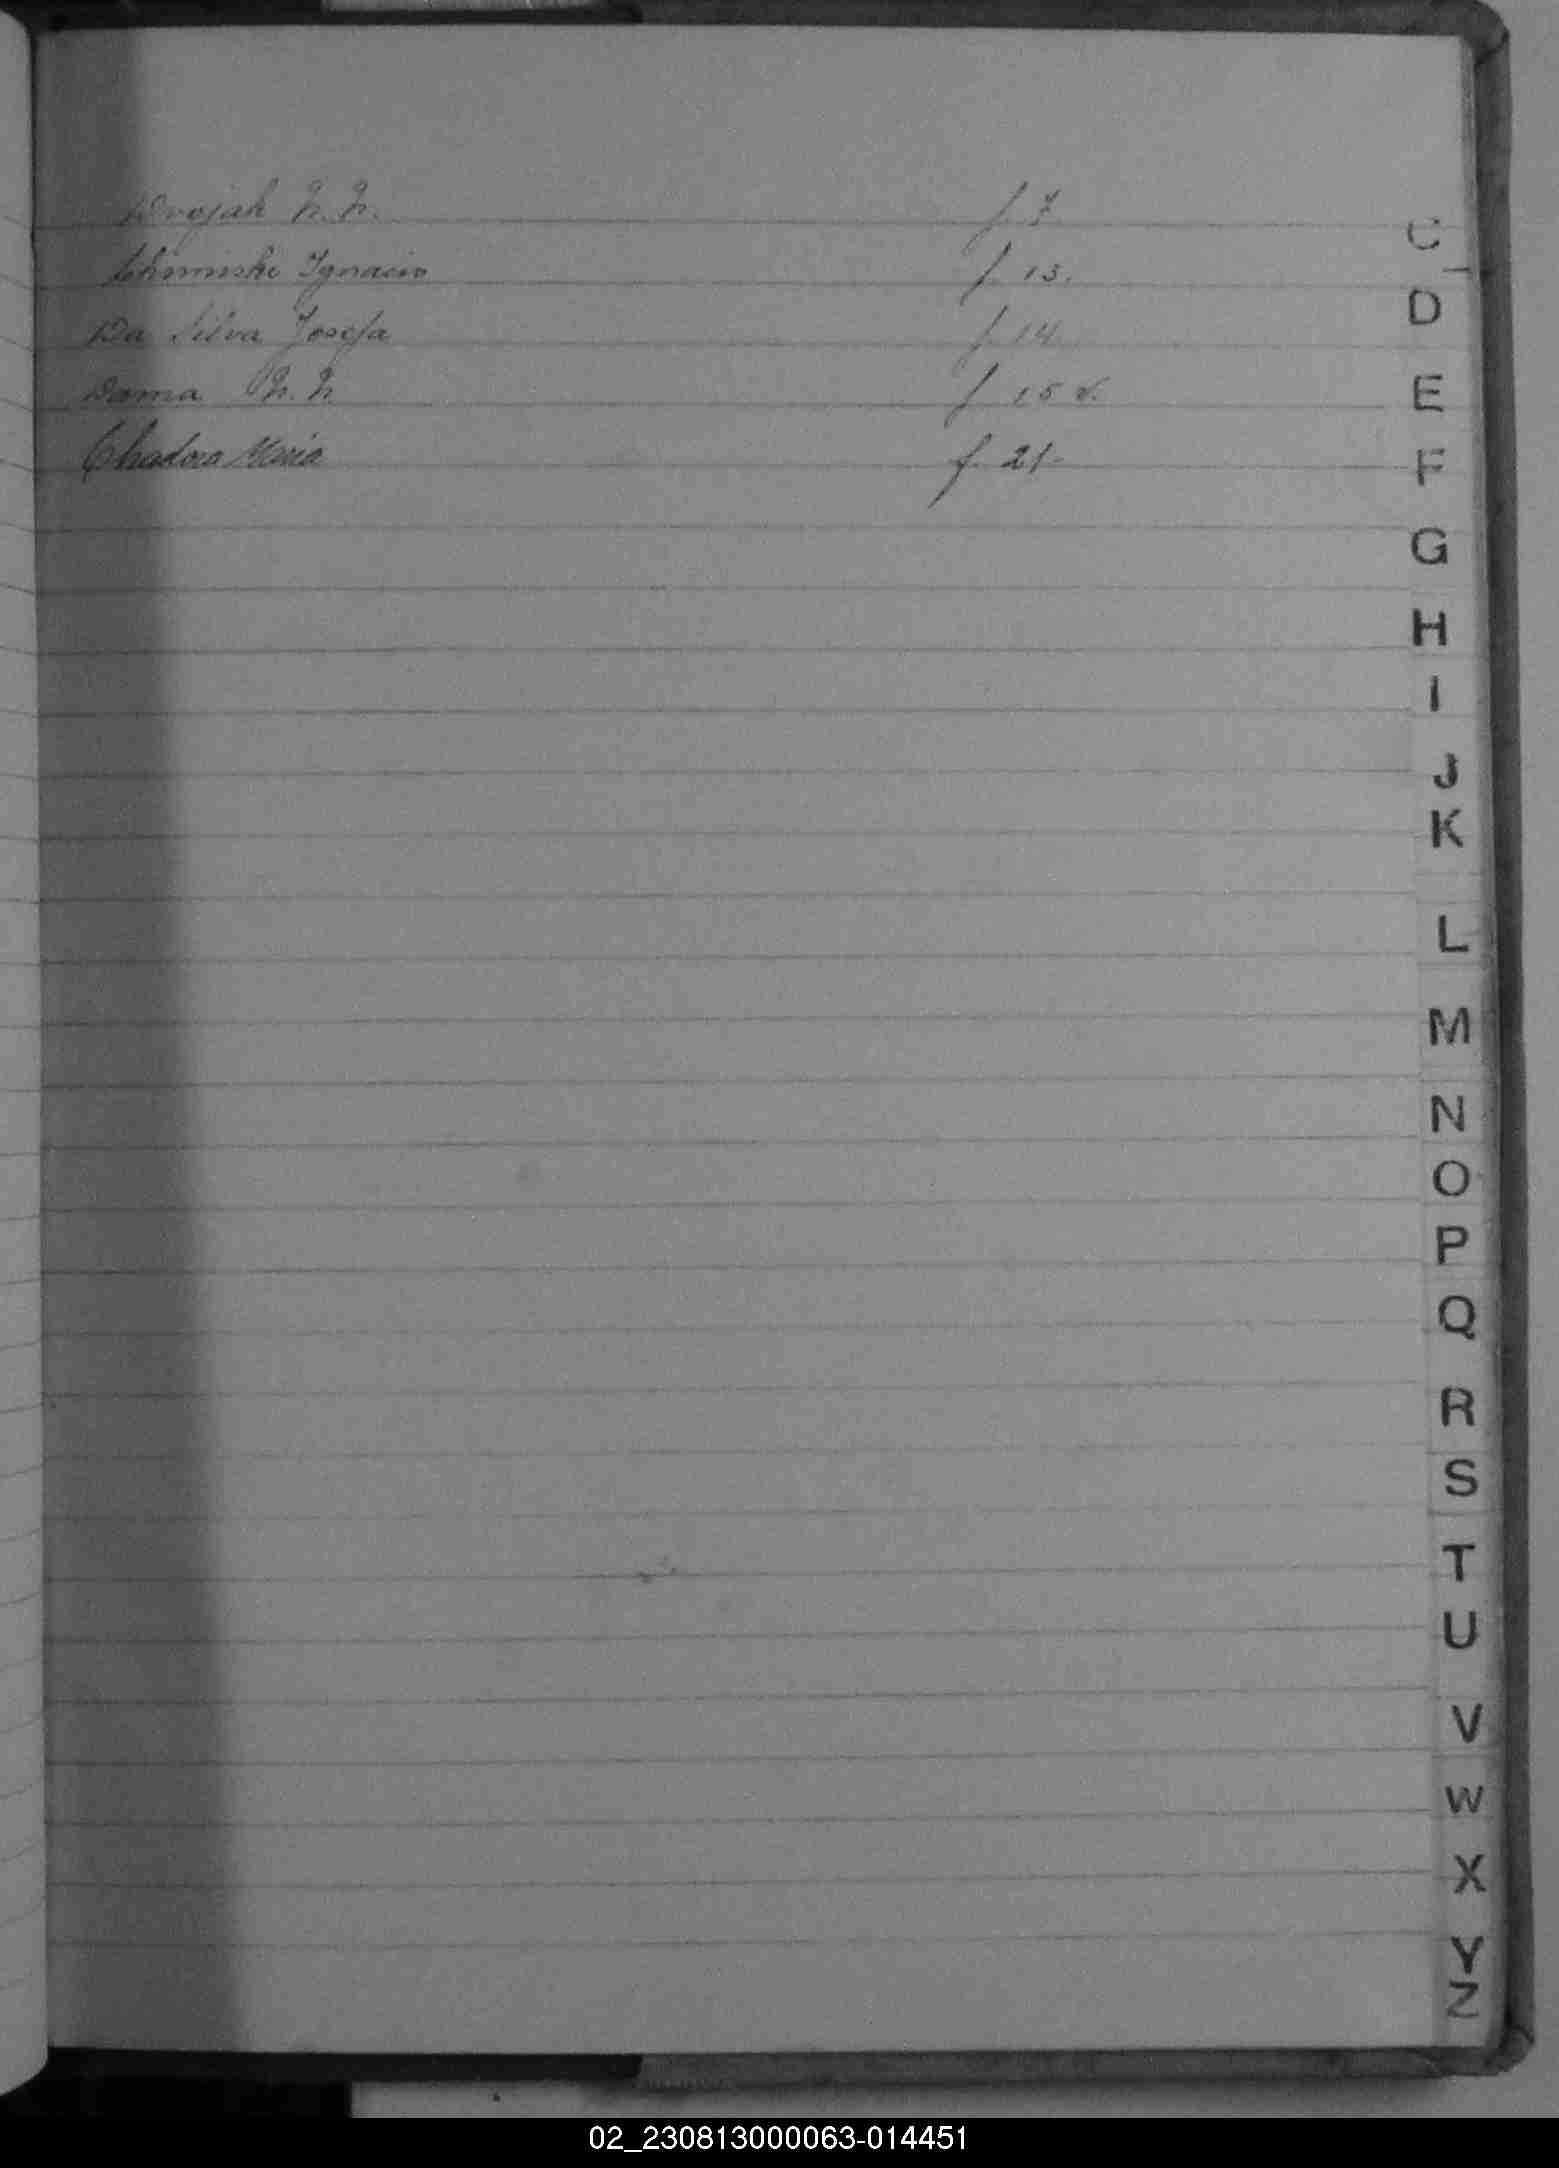 Dvojak N. N. f. 7
Ignacio f. 13.
Da Silva Josefa f. 14
Doma N. N. f. 15 v.
Maria f. 21-
C
D
E
F
G
H
I
J
K
L
M
N
O
P
Q
R
S
T
U
V
W
X
Y
Z
02_230813000063-014451